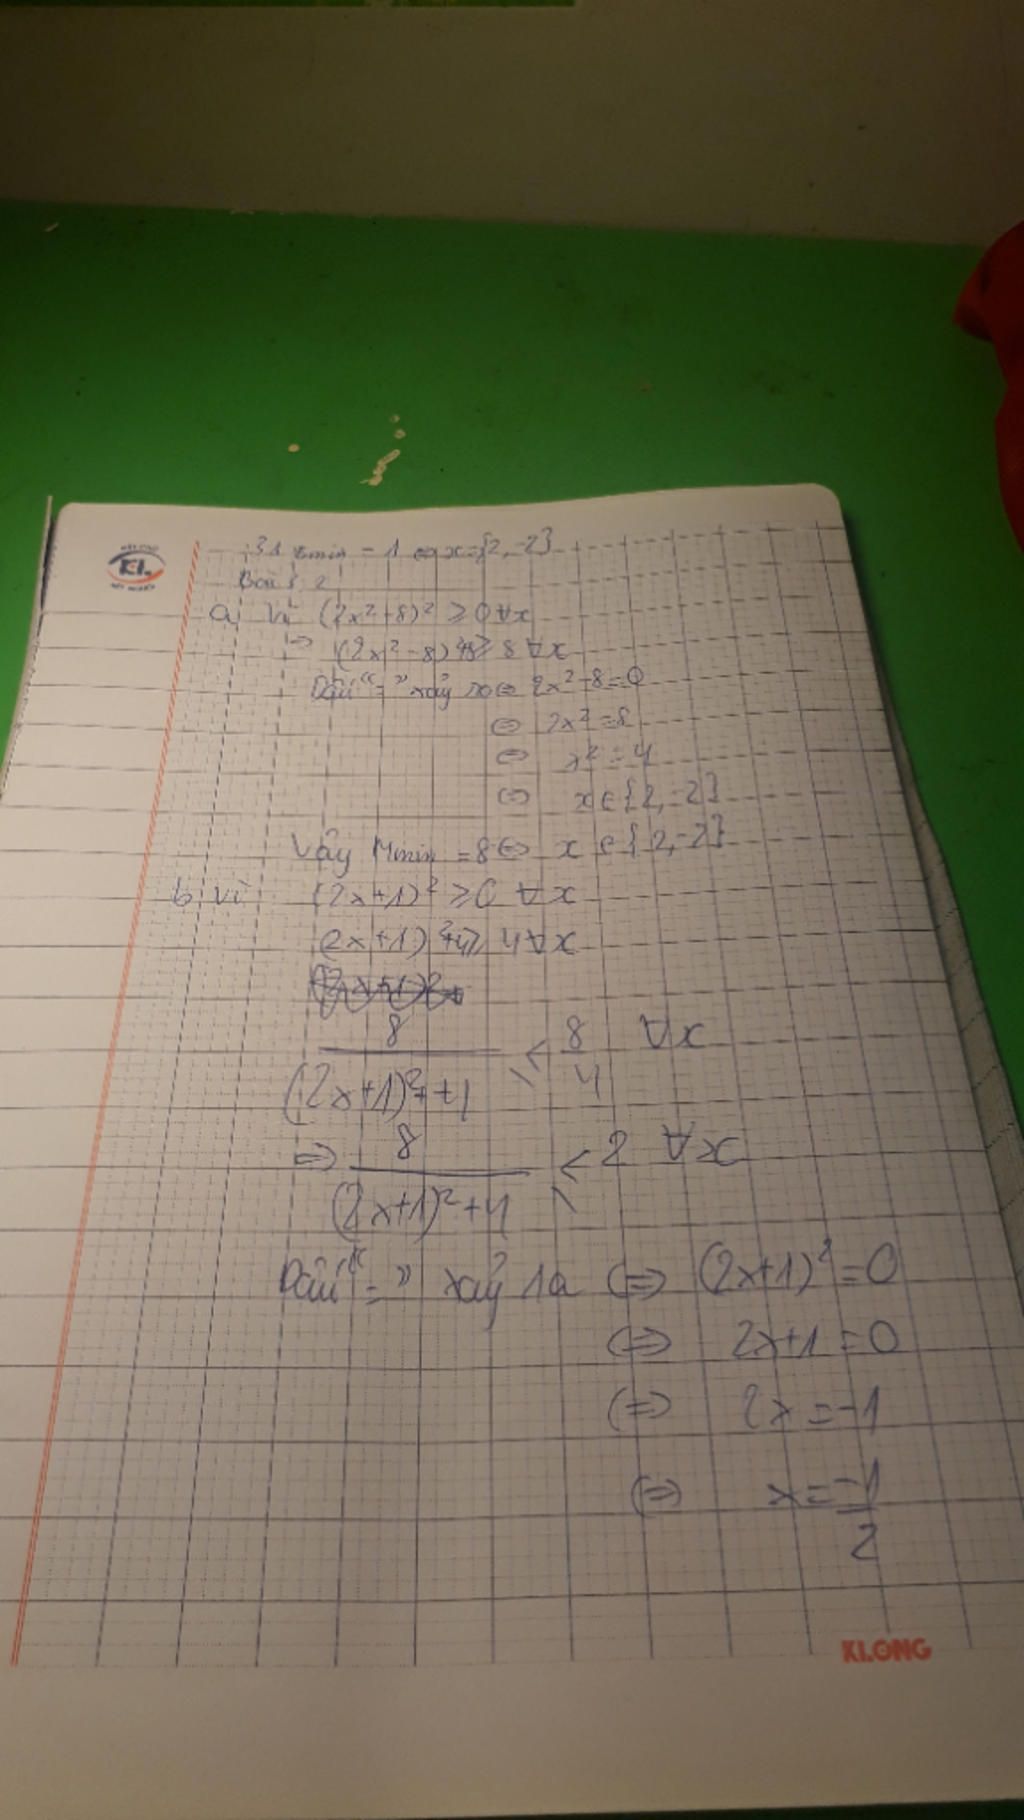 KL.
min = 1 ⇔ x = {2, -2}
Bài 2
a) Vì (2x² + 8)² ≥ 0 ∀x
⇒ (2x² - 8)²+8 ≥ 8 ∀x
Dấu "=" xảy ra ⇔ 2x² - 8 = 0
⇔ 2x² = 8
⇔ x² = 4
⇔ x ∈ {2, -2}
Vậy Mmin = 8 ⇔ x ∈ {2, -2}
b, Vì (2x+1)² ≥ 0 ∀x
(2x+1)²+4 ≥ 4 ∀x
8 / (2x+1)²+4 ≤ 8/4 ∀x
⇒ 8 / (2x+1)²+4 ≤ 2 ∀x
Dấu "=" xảy ra ⇔ (2x+1)² = 0
⇔ 2x+1 = 0
⇔ 2x = -1
⇔ x = -1/2
KLONG